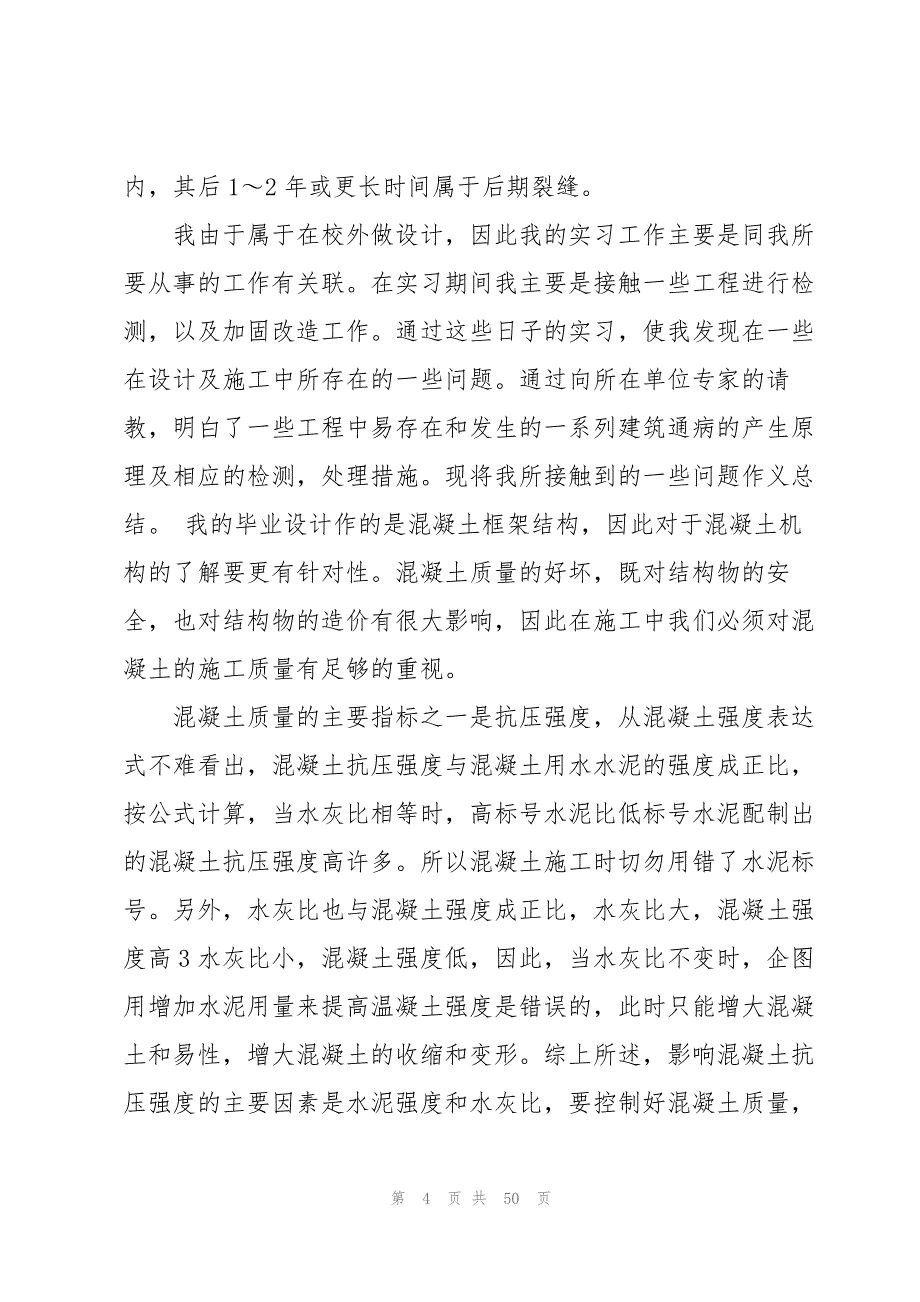 内，其后 1～2 年或更长时间属于后期裂缝。
我由于属于在校外做设计，因此我的实习工作主要是同我所
要从事的工作有关联。在实习期间我主要是接触一些工程进行检
测，以及加固改造工作。通过这些日子的实习，使我发现在一些
在设计及施工中所存在的一些问题。通过向所在单位专家的请
教，明白了一些工程中易存在和发生的一系列建筑通病的产生原
理及相应的检测，处理措施。现将我所接触到的一些问题作义总
结。 我的毕业设计作的是混凝土框架结构，因此对于混凝土机
构的了解要更有针对性。混凝土质量的好坏，既对结构物的安
全，也对结构物的造价有很大影响，因此在施工中我们必须对混
凝土的施工质量有足够的重视。
混凝土质量的主要指标之一是抗压强度，从混凝土强度表达
式不难看出，混凝土抗压强度与混凝土用水水泥的强度成正比，
按公式计算，当水灰比相等时，高标号水泥比低标号水泥配制出
的混凝土抗压强度高许多。所以混凝土施工时切勿用错了水泥标
号。另外，水灰比也与混凝土强度成正比，水灰比大，混凝土强
度高 3 水灰比小，混凝土强度低，因此，当水灰比不变时，企图
用增加水泥用量来提高温凝土强度是错误的，此时只能增大混凝
土和易性，增大混凝土的收缩和变形。综上所述，影响混凝土抗
压强度的主要因素是水泥强度和水灰比，要控制好混凝土质量，
第 4 页 共 50 页